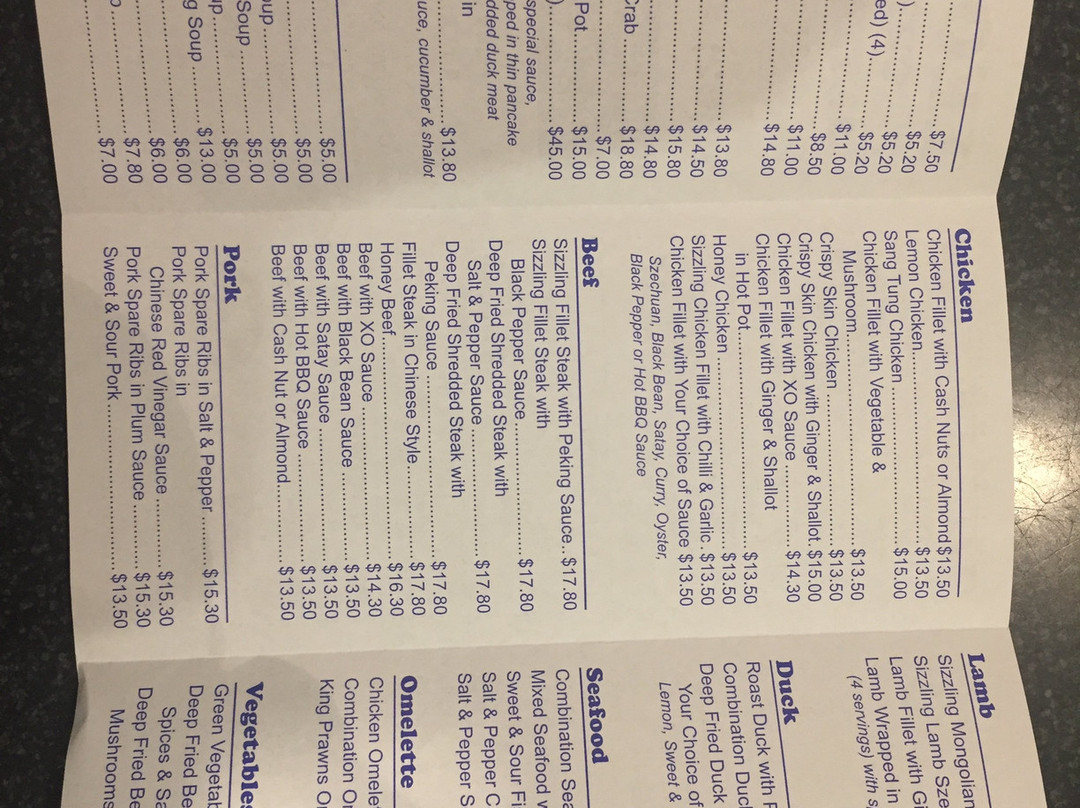 $7.50
)$5.20
$5.20
ed) (4)$5.20
$11.00
$8.50
$11.00
$14.80
$13.80
$14.50
$15.80
$14.80
Crab$18.80
$7.00
Pot$15.00
)$45.00
special sauce,
ped in thin pancake
dded duck meat
in
$13.80
uce, cucumber & shallot
$5.00
$5.00
oup$5.00
Soup$5.00
up$5.00
g Soup$13.00
$6.00
$6.00
$7.80
$7.00
Chicken
Chicken Fillet with Cash Nuts or Almond $13.50
Lemon Chicken $13.50
Sang Tung Chicken $15.00
Chicken Fillet with Vegetable &
Mushroom $13.50
Crispy Skin Chicken $13.50
Crispy Skin Chicken with Ginger & Shallot. $15.00
Chicken Fillet with XO Sauce $14.30
Chicken Fillet with Ginger & Shallot
in Hot Pot $13.50
Honey Chicken $13.50
Sizzling Chicken Fillet with Chilli & Garlic. $13.50
Chicken Fillet with Your Choice of Sauce $13.50
Szechuan, Black Bean, Satay, Curry, Oyster,
Black Pepper or Hot BBQ Sauce
Beef
Sizzling Fillet Steak with Peking Sauce.. $17.80
Sizzling Fillet Steak with
Black Pepper Sauce $17.80
Deep Fried Shredded Steak with
Salt & Pepper Sauce $17.80
Deep Fried Shredded Steak with
Peking Sauce $17.80
Fillet Steak in Chinese Style $17.80
Honey Beef $16.30
Beef with XO Sauce $14.30
Beef with Black Bean Sauce $13.50
Beef with Satay Sauce $13.50
Beef with Hot BBQ Sauce $13.50
Beef with Cash Nut or Almond $13.50
Pork
Pork Spare Ribs in Salt & Pepper $15.30
Pork Spare Ribs in
Chinese Red Vinegar Sauce $15.30
Pork Spare Ribs in Plum Sauce $15.30
Sweet & Sour Pork $13.50
Lamb
Sizzling Mongolian
Sizzling Lamb Sze
Lamb Fillet with Gi
Lamb Wrapped in
(4 servings) with s
Duck
Roast Duck with P
Combination Duc
Deep Fried Duck
Your Choice of
Lemon, Sweet &
Seafood
Combination Sea
Mixed Seafood w
Sweet & Sour Fi
Salt & Pepper C
Salt & Pepper S
Omelette
Chicken Omelet
Combination O
King Prawns O
Vegetables
Green Vegetab
Deep Fried Be
Spices & Sa
Deep Fried Be
Mushrooms